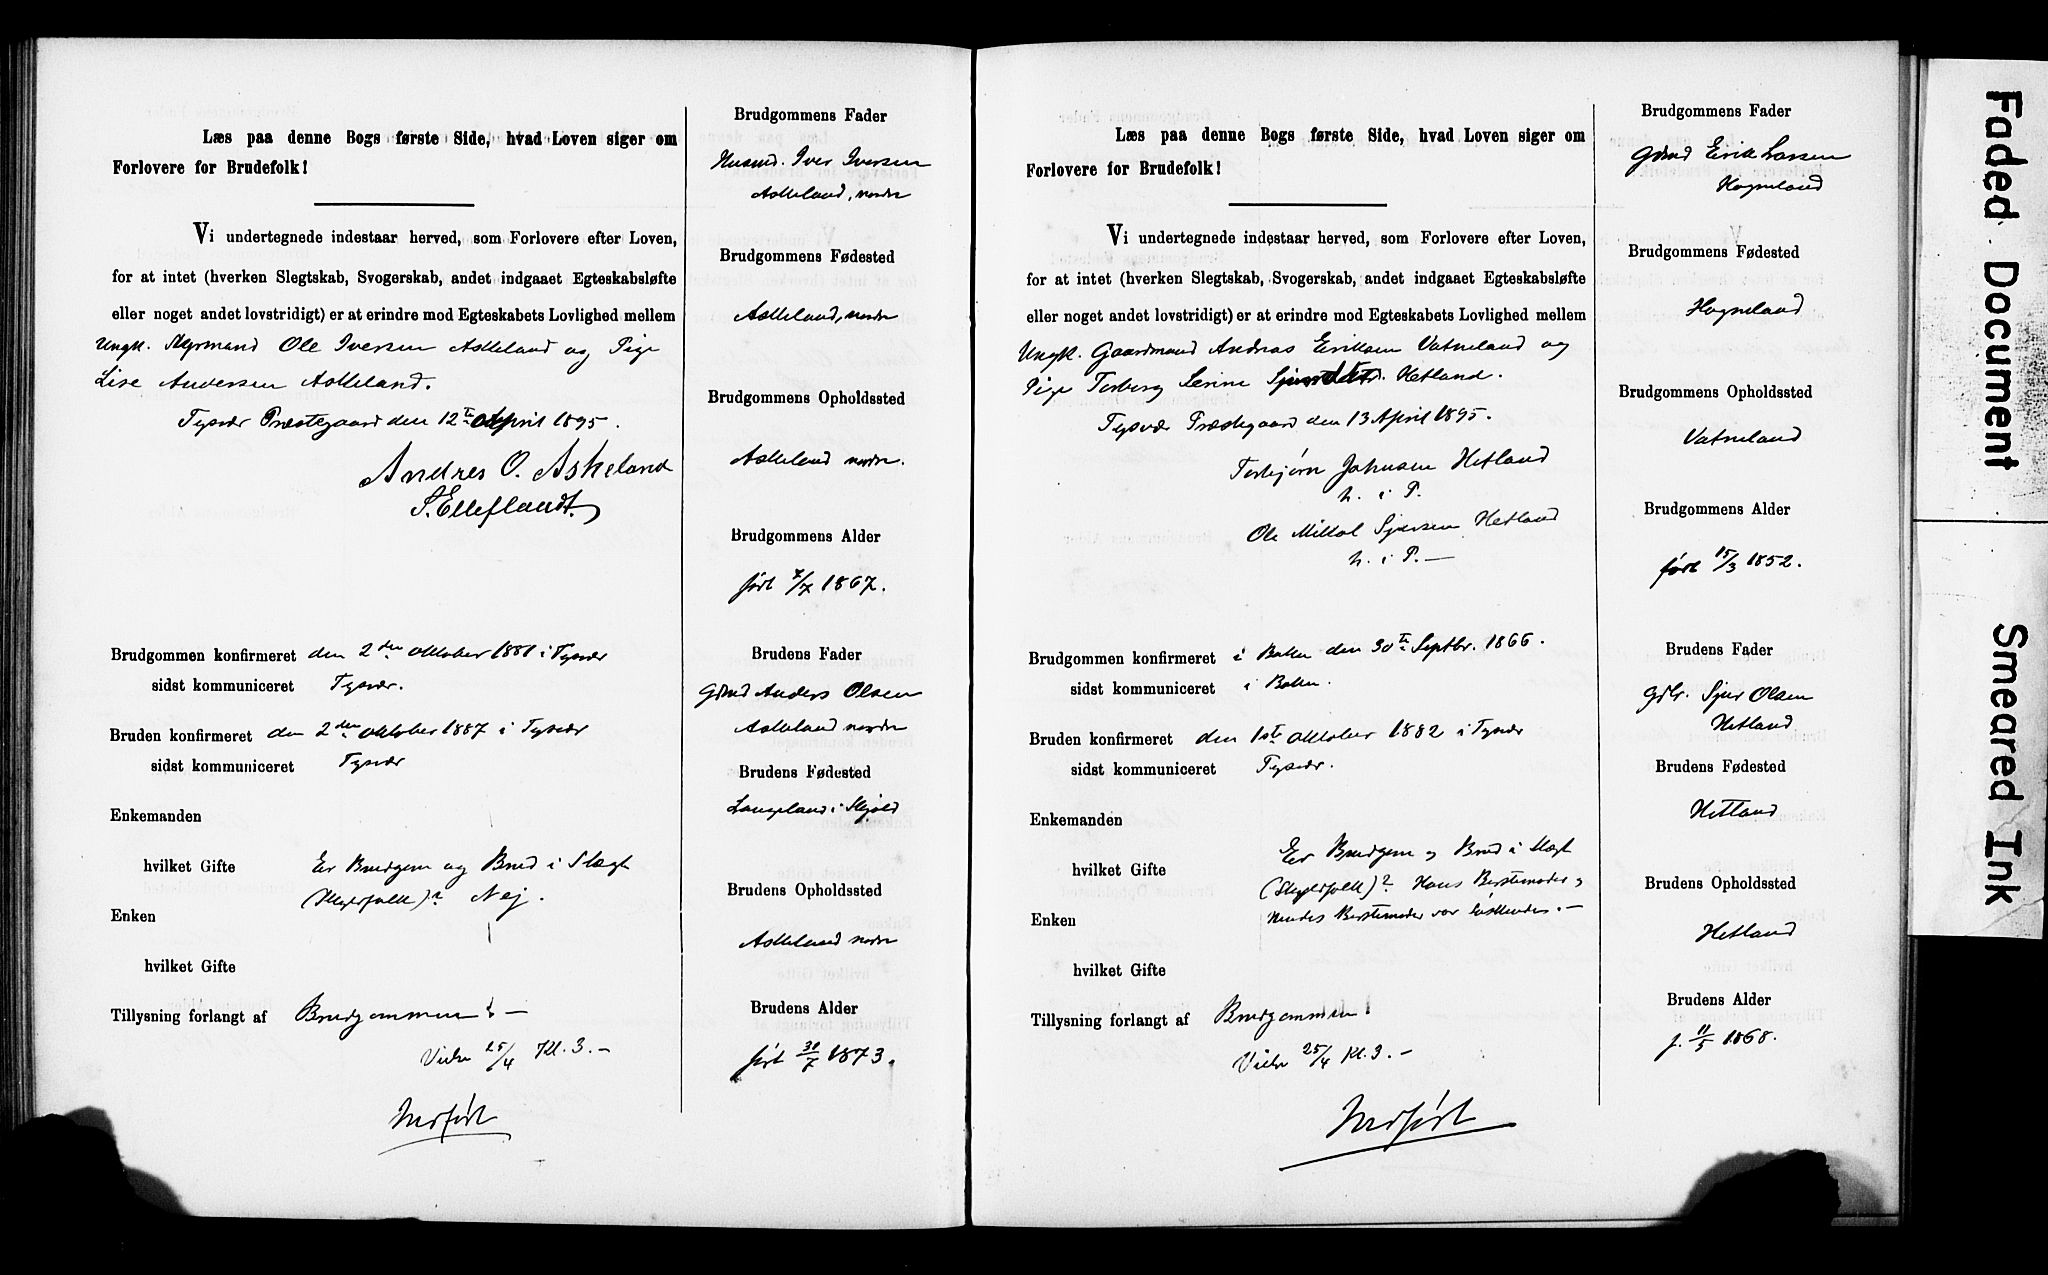 Læs paa denne Bogs første Side, hvad Loven siger om
Forlovere for Brudefolk!
Vi undertegnede indestaar herved, som Forlovere efter Loven,
for at intet (hverken Slegtskab, Svogerskab, andet indgaaet Egteskabsløfte
eller noget andet lovstridigt) er at erindre mod Egteskabets Lovlighed mellem
Ungk. Myrmand Ole Iversen Askeland og Pige
Lise Andersen Askeland.
Tysvær Præstegaard den 12te April 1895.
Andres O. Askeland
S. Elleflandt.
Brudgommen konfirmeret den 2den Oktober 1881 i Tysvær
sidst kommuniceret Tysvær.
Bruden konfirmeret den 2den Oktober 1887 i Tysvær
sidst kommuniceret Tysvær
Enkemanden
hvilket Gifte Er Brudgom og Brud i Slægt
(Skyldfolk)? Nej.
Enken
hvilket Gifte
Tillysning forlangt af Brudgommen! —
Vielse 25/4 Kl. 3. —
Indført
Brudgommens Fader
Husmd. Iver Iversen
Askeland, nordre
Brudgommens Fødested
Askeland, nordre
Brudgommens Opholdssted
Askeland nordre.
Brudgommens Alder
født 7/7 1867.
Brudens Fader
Grbrd Anders Olsen
Askeland nordre
Brudens Fødested
Langeland i Skjold
Brudens Opholdssted
Askeland nordre
Brudens Alder
født 30/7 1873.
Læs paa denne Bogs første Side, hvad Loven siger om
Forlovere for Brudefolk!
Vi undertegnede indestaar herved, som Forlovere efter Loven,
for at intet (hverken Slegtskab, Svogerskab, andet indgaaet Egteskabsløfte
eller noget andet lovstridigt) er at erindre mod Egteskabets Lovlighed mellem
Ungk. Gaardmand Andreas Eriksen Vatneland og
Pige Torberg Serine Sjursdatr. Hetland.
Tysvær Præstegaard den 13 April 1895.
Torbjørn Johnsen Hetland
h. i P.
Ole Mikkal Sjursen Hetland
h. i P. —
Brudgommen konfirmeret i Bokn den 30te Septbr. 1866.
sidst kommuniceret i Bokn.
Bruden konfirmeret den 1ste Oktober 1882 i Tysvær
sidst kommuniceret Tysvær.
Enkemanden
hvilket Gifte Er Brudgom og Brud i Slægt
(Skyldfolk)? Hans Bestemoder og
Enken hendes Bestemoder var Søskendes. —
hvilket Gifte
Tillysning forlangt af Brudgommen!
Vielse 25/4 Kl. 3. —
Indført
Brudgommens Fader
Grbrd Erik Larsen
Hogneland
Brudgommens Fødested
Hogneland
Brudgommens Opholdssted
Vatneland
Brudgommens Alder
født 15/3 1852.
Brudens Fader
Gdbr. Sjur Olsen
Hetland
Brudens Fødested
Hetland
Brudens Opholdssted
Hetland
Brudens Alder
f. 11/5 1868.
Faded Document
Smeared Ink